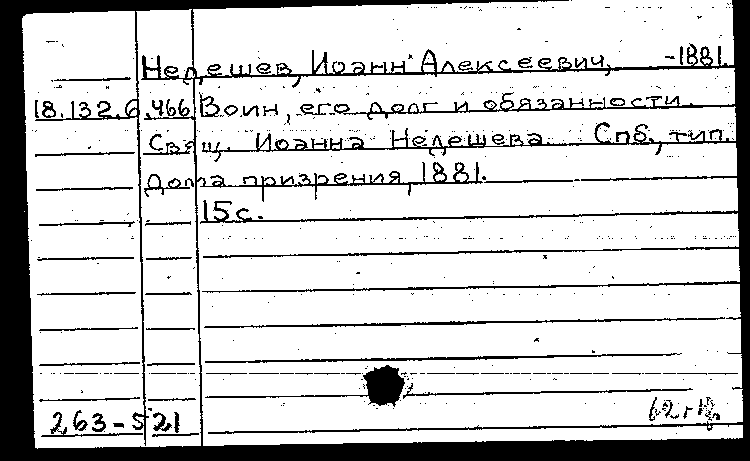 Недешев, Иоанн Алексеевич, -1881.
18.132.6.466 Воин, его долг и обязанности.
Свящ. Иоанна Недешева. Спб., тип.
Дома призрения, 1881.
15 с.
263-521